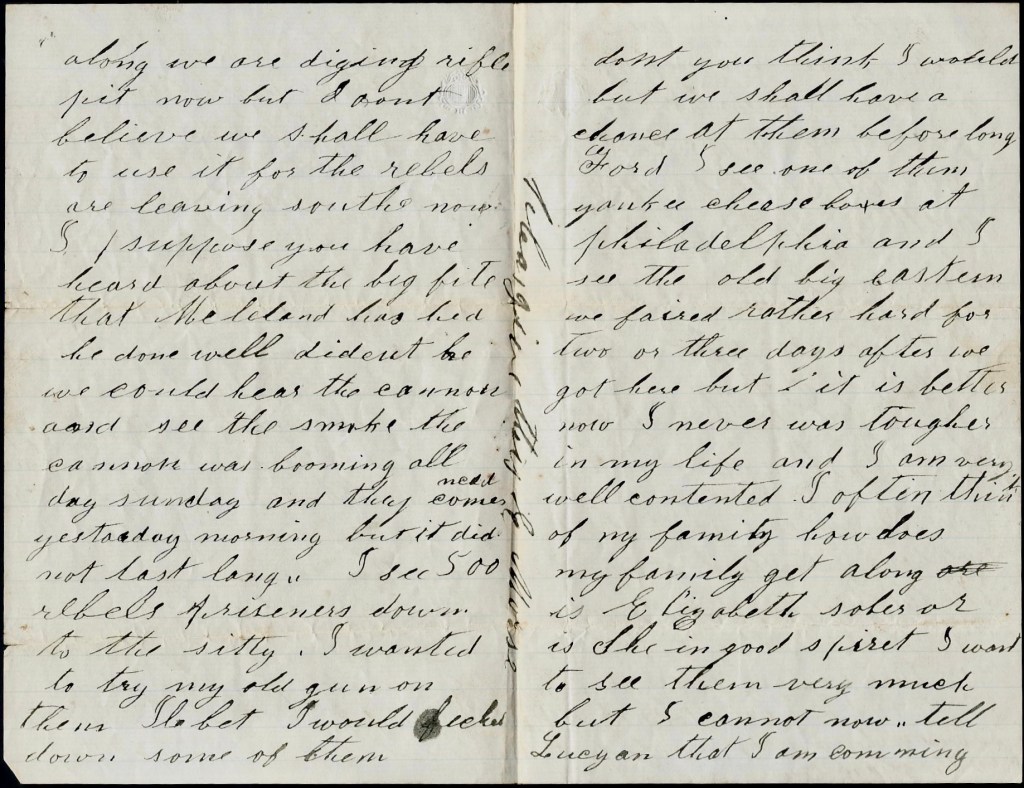 along we are diging rifle
pit now but I dont
believe we shall have
to use it for the rebels
are leaving south now
I suppose you have
heard about the big fite
that Mcleland has hed
he done well dident he
we could hear the cannon
aand see the smoke the
cannon was booming all
day sunday and they comenced
yestarday morning but it did
not last lang,, I see 500
rebels priseners down
to the sitty. I wanted
to try my old gun on
them Ile bet I would
down some of them
dont you think I would
but we shall have a
chance at them before long
Ford I see one of them
yankee cheese boxes at
philadelphia and I
see the old big eastern
we faired rather hard for
two or three days after we
got here but it is better
now I never was tougher
in my life and I am very
well contented I often think
of my family how does
my family get along are
is Elizabeth sober or
is she in good spiret I want
to see them very much
but I cannot now,, tell
Lucyan that I am comming
this